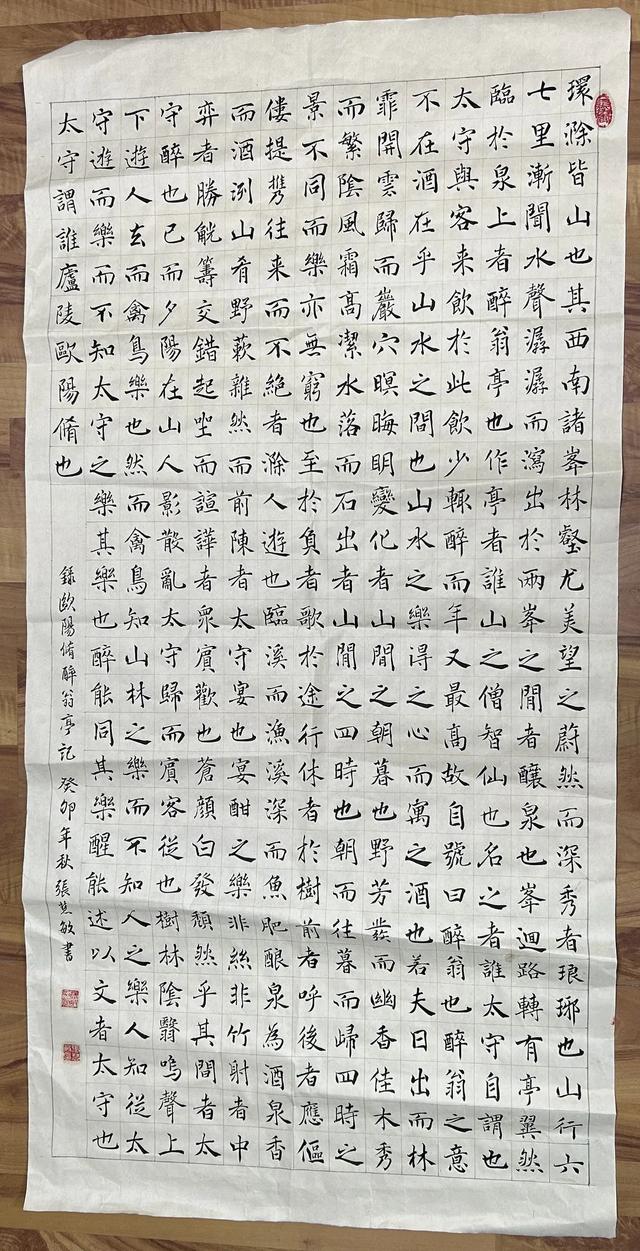 環滁皆山也其西南諸峯林壑尤美望之蔚然而深秀者琅琊也山行六
七里漸聞水聲潺潺而瀉出於兩峯之間者釀泉也峯迴路轉有亭翼然
臨於泉上者醉翁亭也作亭者誰山之僧智仙也名之者誰太守自謂也
太守與客来飲於此飲少輒醉而年又最高故自號曰醉翁也醉翁之意
不在酒在乎山水之間也山水之樂得之心而寓之酒也若夫日出而林
霏開雲歸而巖穴暝晦明變化者山間之朝暮也野芳發而幽香佳木秀
而繁陰風霜高潔水落而石出者山間之四時也朝而往暮而歸四時之
景不同而樂亦無窮也至於負者歌於途行休者於樹前者呼後者應傴
僂提攜往来而不絕者滁人遊也臨溪而漁溪深而魚肥酿泉為酒泉香
而酒洌山肴野蔌雜然而前陳者太守宴也宴酣之樂非絲非竹射者中
弈者勝觥籌交錯起坐而諠譁者眾賓歡也蒼顏白發頹然乎其間者太
守醉也已而夕陽在山人影散亂太守歸而賓客從也樹林陰翳鳴聲上
下遊人去而禽鳥樂也然而禽鳥知山林之樂而不知人之樂人知從太
守遊而樂而不知太守之樂其樂也醉能同其樂醒能述以文者太守也
太守謂誰廬陵歐陽脩也
錄歐陽脩醉翁亭記 癸卯年秋張慧敏書